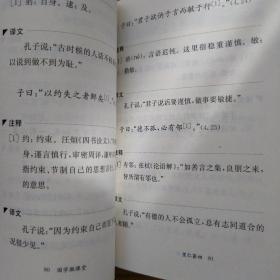 [1] 躬：自身。逮：及。
译文
孔子说："古时候的人话不
以说到做不到为耻。"
子曰："以约失之者鲜矣[1]。"
注释
[1] 约：约束。汪烜《四书诠义》
身，谨言慎行，审密周详，谦
指约束、节制自己的思想言
的意思。
译文
孔子说："因为约束自己而
况很少见。"
90 国学微课堂
子曰："君子欲讷于言而敏于行[1]。"(4.24)
注释
[1] 讷(nè)：言语迟钝。这里指稳重谨慎。敏：
勤敏。
译文
孔子说："君子说话要谨慎，做事要敏捷。"
子曰："德不孤，必有邻[1]。"(4.25)
注释
[1] 有邻：张栻《论语解》："如善言之集，良朋之来，
皆所谓有邻也。"
译文
孔子说："有德的人不会孤立，总有志同道合的
里仁第四 91